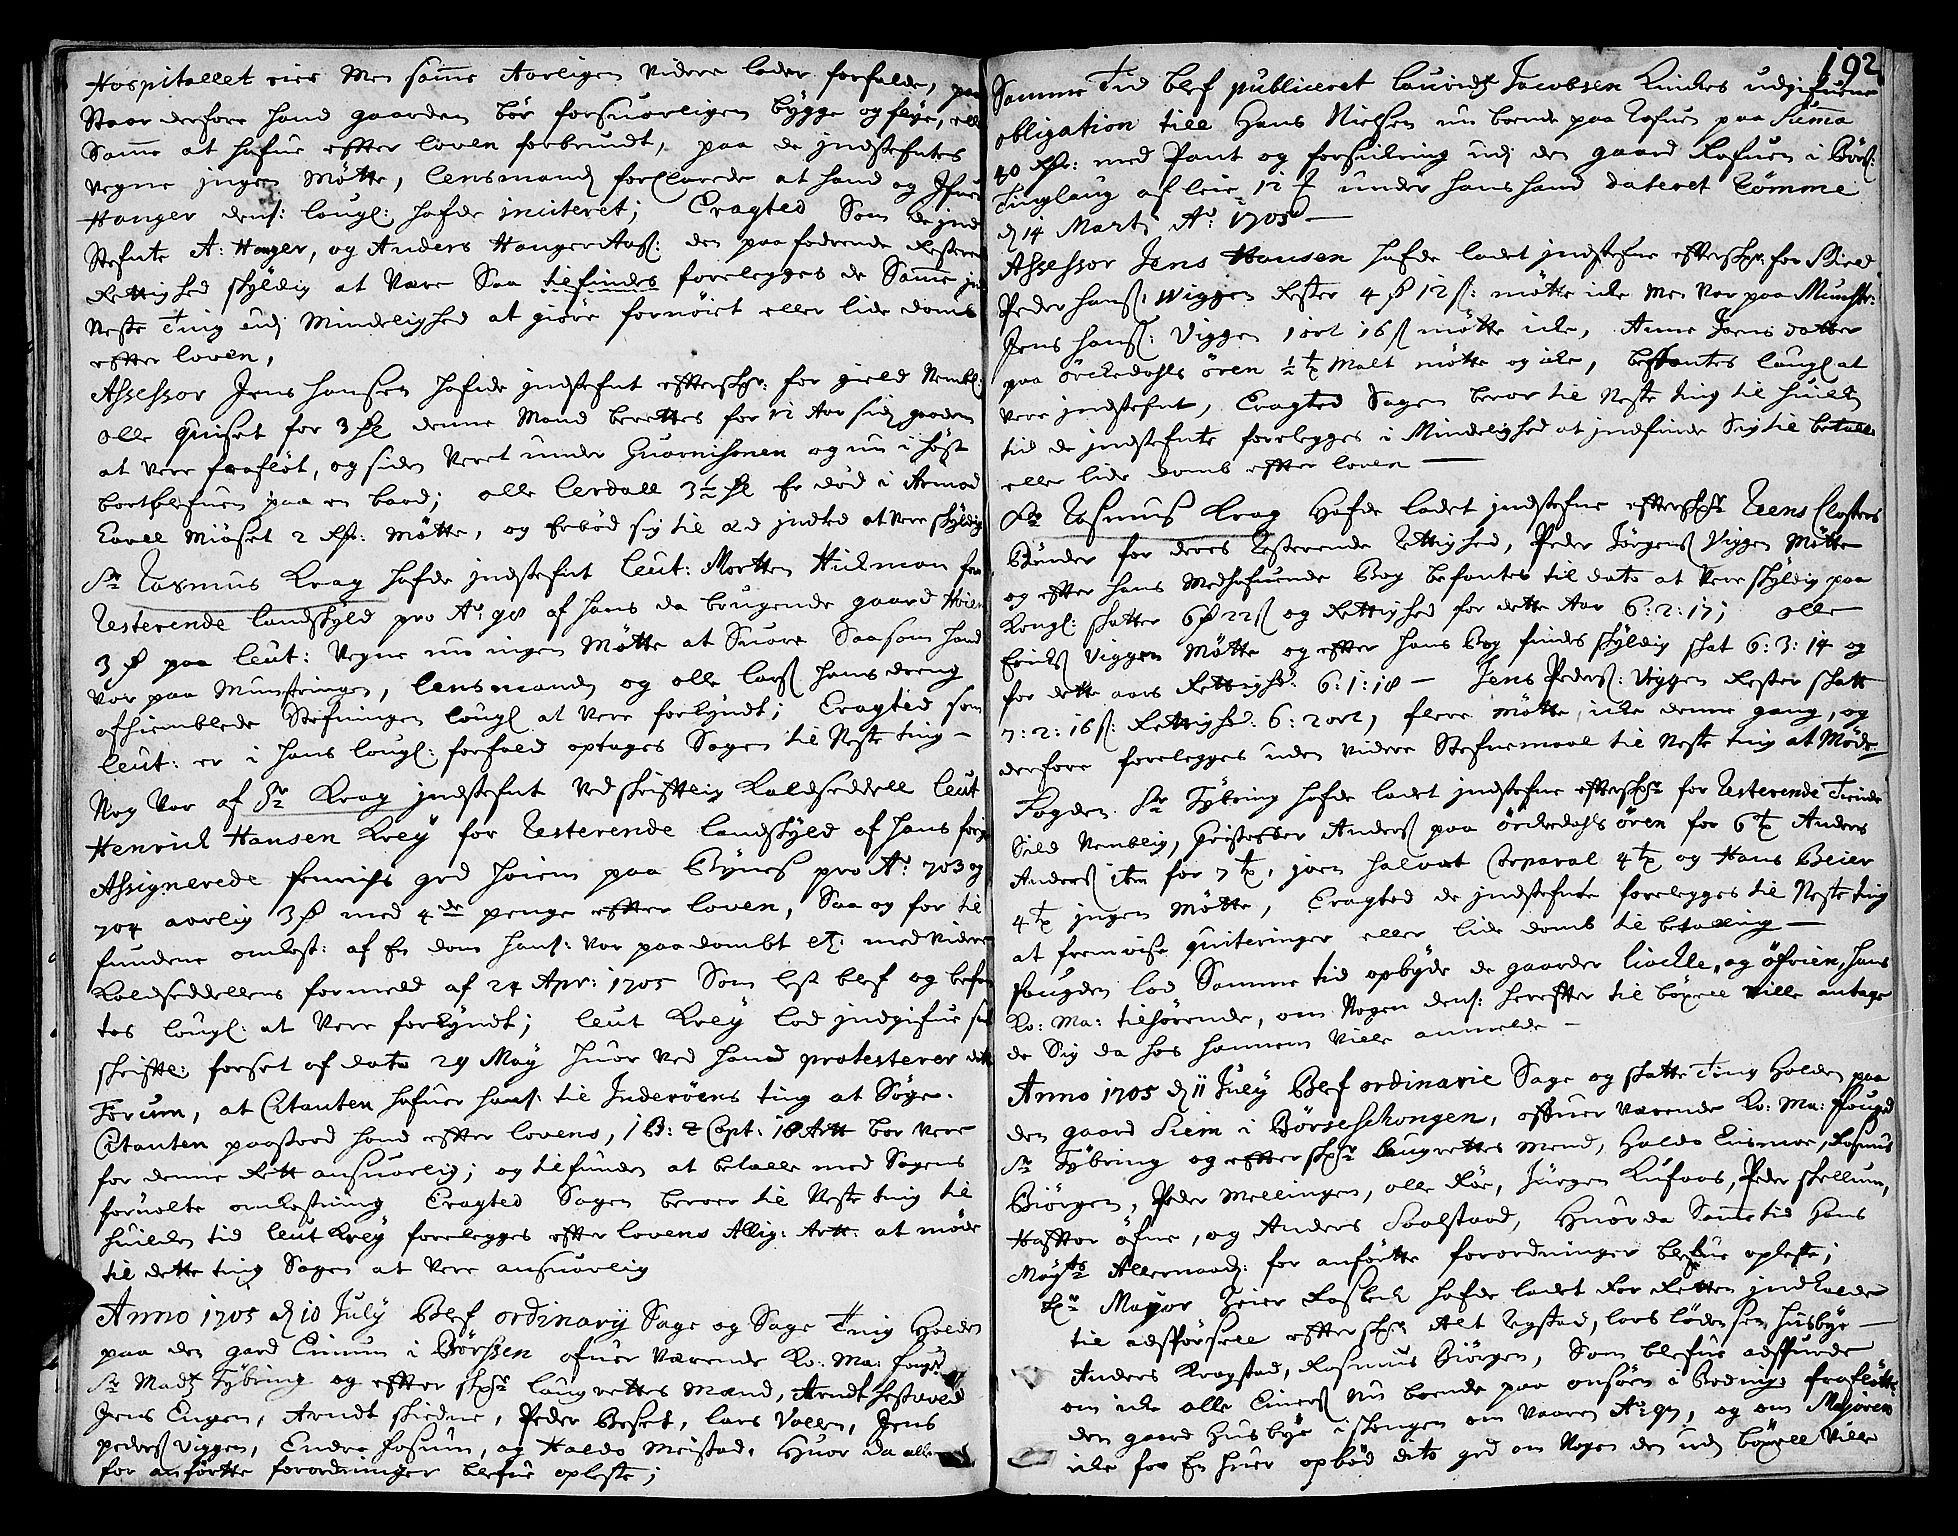 Hospitallet eier Men samme Aarligen Videre lader forfalde, paa
Staar derfore hand gaarden bør forsuarligen bÿgge og fløÿe, eller
Samme at hafue efter loven forbrudt, paa de indstefntes
vegne ingen Møtte, lensmand forklarede at hand og Ifuer
Hanger dens: lougl: hafde inciteret; Eragted Som de ind
Stefnte A: Hanger, og Anders Hanger Aass: den paafodrende Resterende
Rettighed skÿldig at Være Saa tilfindes forelegges de Samme in
Neste Ting udj Mindelighed at giøre fornøiet eller lide doms
efter loven,
Assessor Jens Hansen hafde indstefnt efterschr: for gield Nembl:
Olle Quiset for 3 denne Mand berettes for 12 Aar sid gaarden
at vere frafløt, og siden Veret under Guarnisonen og nu i høst
bortblefuen paa en baad; Olle Lerdall 3½ Er død i Armod
Eorell Miøset 2 Rdr: Møtte, og Erbød sig til Ed indted at vere skÿldig
Sr Rasmus Krag hafde indstefnt leut: Morten Hickman for
Resterende landskÿld pro Ao: 98 af hans da brugende gaard Høiem
3 paa leut: Vegne nu ingen Møtte at Suare Saasom hand
Var paa Munstringen, lensmand og olle larss hans dreng
afhiemblede Stefningen lougl at vere forkÿndt; Eragted som
leut: er i hans lougl: forfald optages Sagen til Neste ting —
Nog Var af Sr Krag indstefnt Ved skriftlig Kaldseddell leut
Henrich Hansen Kreÿ for Resterende landskÿld af hans forige
Assignerede fenrichs grd Høiem paa Bÿnes pro Ao 703 og
704 aarlig 3 med 4de penge efter loven, Saa og for til
fundene omkost: af En dom hans: Var paadømbt etc: med Videre
Kaldseddellens formeld af 24 Apr: 1705 Som lest blef og befan
tes lougl: at Vere forkÿndt; leut Kreÿ lod indgifue sit
skriftl: forset af dato 29 Maÿ huor ved hand protesterer dette
Forum, at Citanten hafuer hans: til Inderøens ting at Søge.
Citanten paastod hand efter lovens, 1 B: 2 Capt: 18 Artt bør vere
for denne Rett ansuarlig; og tilfunden at betalle med Sagens
foruolte omkostning Eragted Sagen berører til Neste ting til
huilchen tid leut Kreÿ forelegges efter lovens Allig: Artt: at møde
til dette ting Sagen at vere ansuarlig
Anno 1705 d 10 Julÿ Blef ordinarÿ Sage og Sage Ting Holden
paa den gard Einum i Børssen ofuer Værende Ko: Ma: fougd
Sr Madtz Tÿbring og efter skr: laugrettes mænd, Arndt Hestuæed
Jens Engen, Arndt skiedne, Peder Beset, lars Vallen, Jens
pederss Viggen, Endre Fosum, og Haldo Meistad, Huor da aller
for anførtte forordninger blefue opleste;
192
Samme Tid blef publiceret lauridtz Jacobsen Kinches udgifuene
obligation till Hans Nielsen nu boende paa Tofuen paa Suma
40 Rdr: med Pant og forsickring udj den gaard Rofuen i Børs:
Tinglaug af leie 12 under hans hand dateret Rømme
d 14 Marti Ao: 1705 —
Assessor Jens Hansen hafde ladet indstefne efterschr: for Gield
Peder Hanss: Wiggen Rester 4 12 s: møtte icke Men Var paa Munstr:
Jens Hanss: Viggen 1 ort 16 s møtte icke, Anne Joens datter
paa Orckedahls øren ½ Malt møtte og icke, befantes lougl at
vere indstefnt, Eragted Sagen beror til Neste ting til huilche
tid de indstefnte forelegges i Mindelighed at indfinde Sig til betalle
eller lide doms efter loven —
Sr Rasmus Krag Hafde ladet indstefne efterschr Reens Closters
Bønder for deres Resterende Rettighed, Peder Jørgenss Viggen Møtte
og efter hans Medhafuende Bog befantes til dato at Vere skÿldig paa
Kongl: skatter 6 22 s og Rettighed for dette Aar 6: 2: 17; olle
Erichs Viggen Møtte og efter hans Bog findes skÿldig skat 6: 3: 14 og
for dette aars Rettighed: 6: 1: 18 — Jens Pederss: Viggen Rester skatt
7: 2: 16 s: Rettighed: 6: 2 ort, flere møtte icke denne gang, og
derfore forelegges uden videre Stefnemaal til Neste ting at Møde
Fogden Sr Tÿbring hafde ladet indstefne efterschr for Resterende Tiende
Sild Nemblig, Anderss paa Orckedahls øren for 6 Anders
Anderss itm for 7, joen halvoet Corporal 4 og Hans Beier
4 ingen Møtte, Eragted de indstefnte forelegges til Neste ting
at fremvise quiteringer eller lide doms til betalling —
fougden lod Samme tid opbÿde de gaarder liaclle, og øfvien, hans
Ko: Ma: tilhørende, om Nogen dens: herefter til bøxell Ville antage
de Sig da hos hannem Ville anmelde —
Anno 1705 d 11 Julÿ Blef ordinarie Sage og skatte Ting Holden paa
den gaard Siem i Børseschongen, ofuer værende Ko: Ma: fouged
Sr Tÿbring og efter schr: laugrettes mend, Haldo Eismoe, Rasmus
Biørgen, Peder Mellingen, olle Røe, Jørgen Kufaas, Peder skellum,
Haftor øfne, og Anders Saalstad, Huor da Samme tid Hans
Maÿts Allernaad: for anførtte forordninger blefue opleste;
Hr Major Heier hafde ladet For Retten indkalde
til adspørsell efterschr: Alt Rogstad, lars lødensen husbÿe —
Anders Krogstad, Rasmus Biørgen, Som blefue adspurde
om icke olle Einerss Nu boende paa onsøen i Bodnigs frafløtte
den gaard Husbÿe i skongen om Vaaren Ao: 97, og om Majoren
icke for En huer opbød dito grd om Nogen den udj bøxell Ville